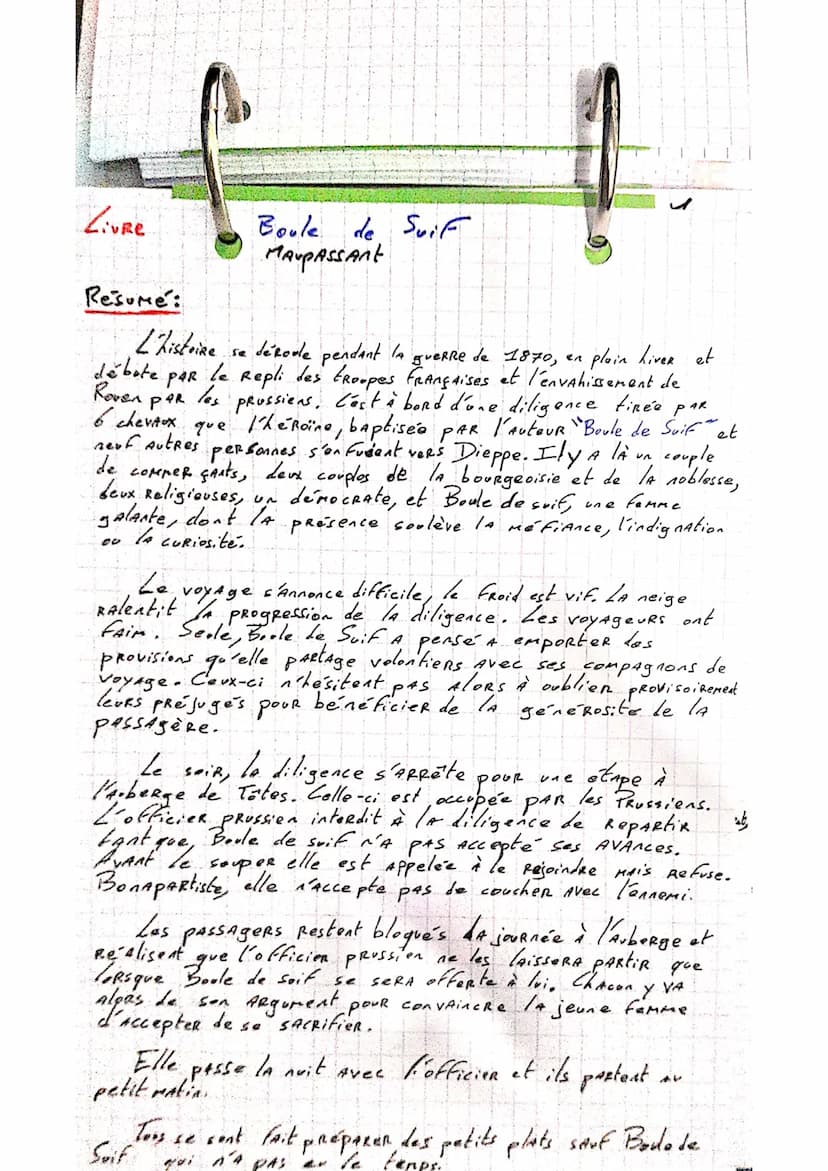 Livre
Boule de Suif
Maupassant
Résumé:
L'histoire se déroule pendant la guerre de 1870, en plein hiver et
débute par le repli des troupes françaises et l'envahissement de
Rouen par les prussiens. C'est à bord d'une diligence tirée par
6 chevaux que l'héroïne, baptisée par l'auteur "Boule de Suif" et
neuf autres personnes s'enfuient vers Dieppe. Il y a là un couple
de commerçants, deux couples de la bourgeoisie et de la noblesse,
deux religieuses, un démocrate, et Boule de suif, une femme
galante, dont la présence soulève la méfiance, l'indignation
ou la curiosité.
Le voyage s'annonce difficile, le froid est vif. La neige
ralentit la progression de la diligence. Les voyageurs ont
faim. Seule, Boule de Suif a pensé a emporter des
provisions qu'elle partage volontiers avec ses compagnons de
voyage. Ceux-ci n'hésitent pas alors à oublier provisoirement
leurs préjugés pour bénéficier de la générosité de la
passagère.
Le soir, la diligence s'arrête pour une étape à
l'auberge de Tôtes. Celle-ci est occupée par les Prussiens.
L'officier prussien interdit à la diligence de repartir
tant que, Boule de suif n'a pas accepté ses avances.
Avant le souper elle est appelée à le rejoindre mais refuse.
Bonapartiste, elle n'accepte pas de coucher avec l'ennemi.
Les passagers restent bloqués la journée à l'auberge et
réalisent que l'officier prussien ne les laissera partir que
lorsque Boule de Suif se sera offerte à lui. Chacun y va
alors de son argument pour convaincre la jeune femme
d'accepter de se sacrifier.
Elle passe la nuit avec l'officier et ils partent au
petit matin.
Tous se sont fait préparer des petits plats sauf Boule de
Suif qui n'a pas eu le temps.